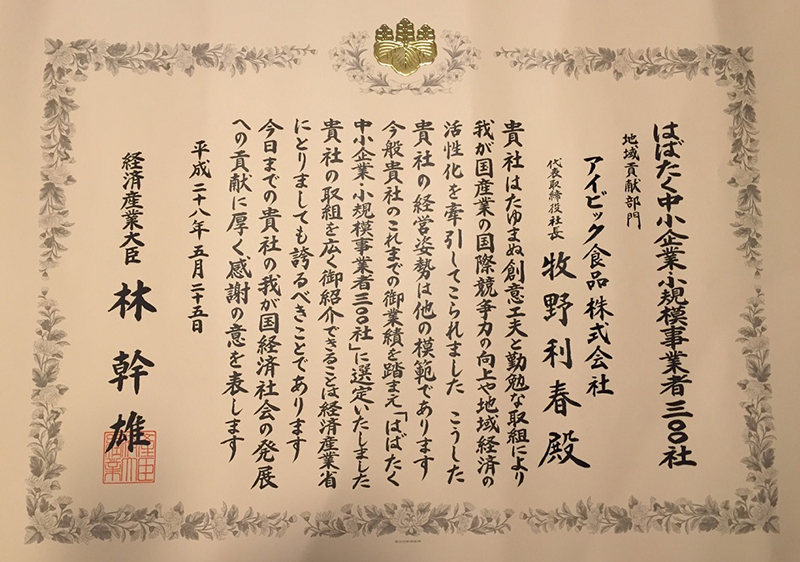 はばたく中小企業・小規模事業者三〇〇社
地域貢献部門
アイビック食品株式会社
代表取締役社長 牧野利春殿
貴社はたゆまぬ創意工夫と勤勉な取組により
我が国産業の国際競争力の向上や地域経済の
活性化を牽引してこられました こうした
貴社の経営姿勢は他の模範であります
今般貴社のこれまでの御業績を踏まえ「はばたく
中小企業・小規模事業者三〇〇社」に選定いたしました
貴社の取組を広く御紹介できることは経済産業省
にとりましても誇るべきことであります
今日までの貴社の我が国経済社会の発展
への貢献に厚く感謝の意を表します
平成二十八年五月二十五日
経済産業大臣 林幹雄